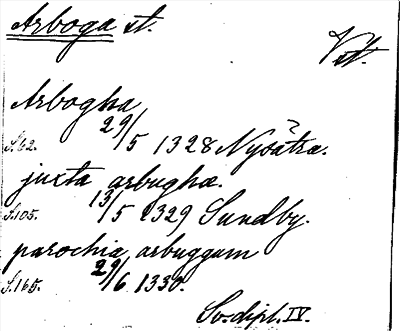 Arboga st.
Vstl.
Arbogha
S. 62. 29/5 1328 Nysätra.
juxta arbughæ
S. 105. 13/5 1329 Sundby.
parochia arbuggum
S. 165. 29/6 1330.
Sv. dipl. IV.